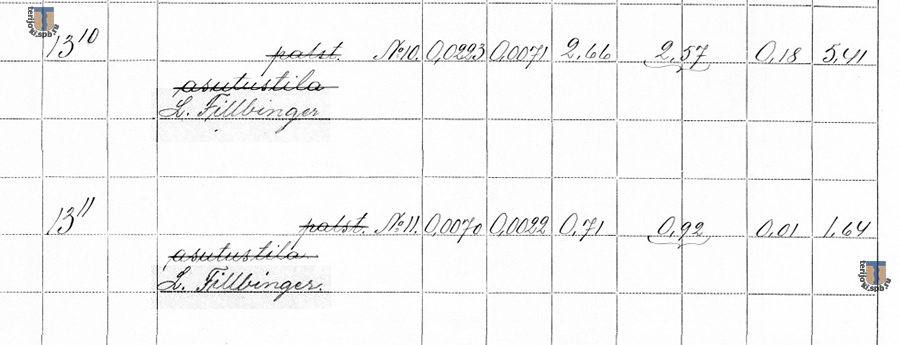 terijoki.spb.ru
13¹⁰ palst. №10. 0,0223 0,0071 2,66 2,57 0,18 5,41
asutustila
L. Fillbinger
13¹¹ palst. №11. 0,0070 0,0022 0,71 0,92 0,01 1,64
asutustila
L. Fillbinger.
terijoki.spb.ru